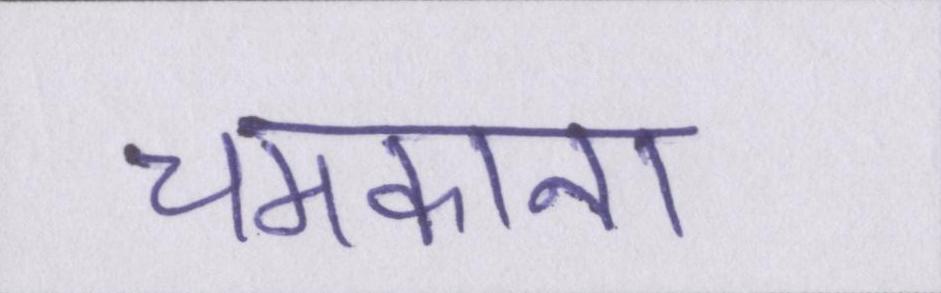 चमकाना